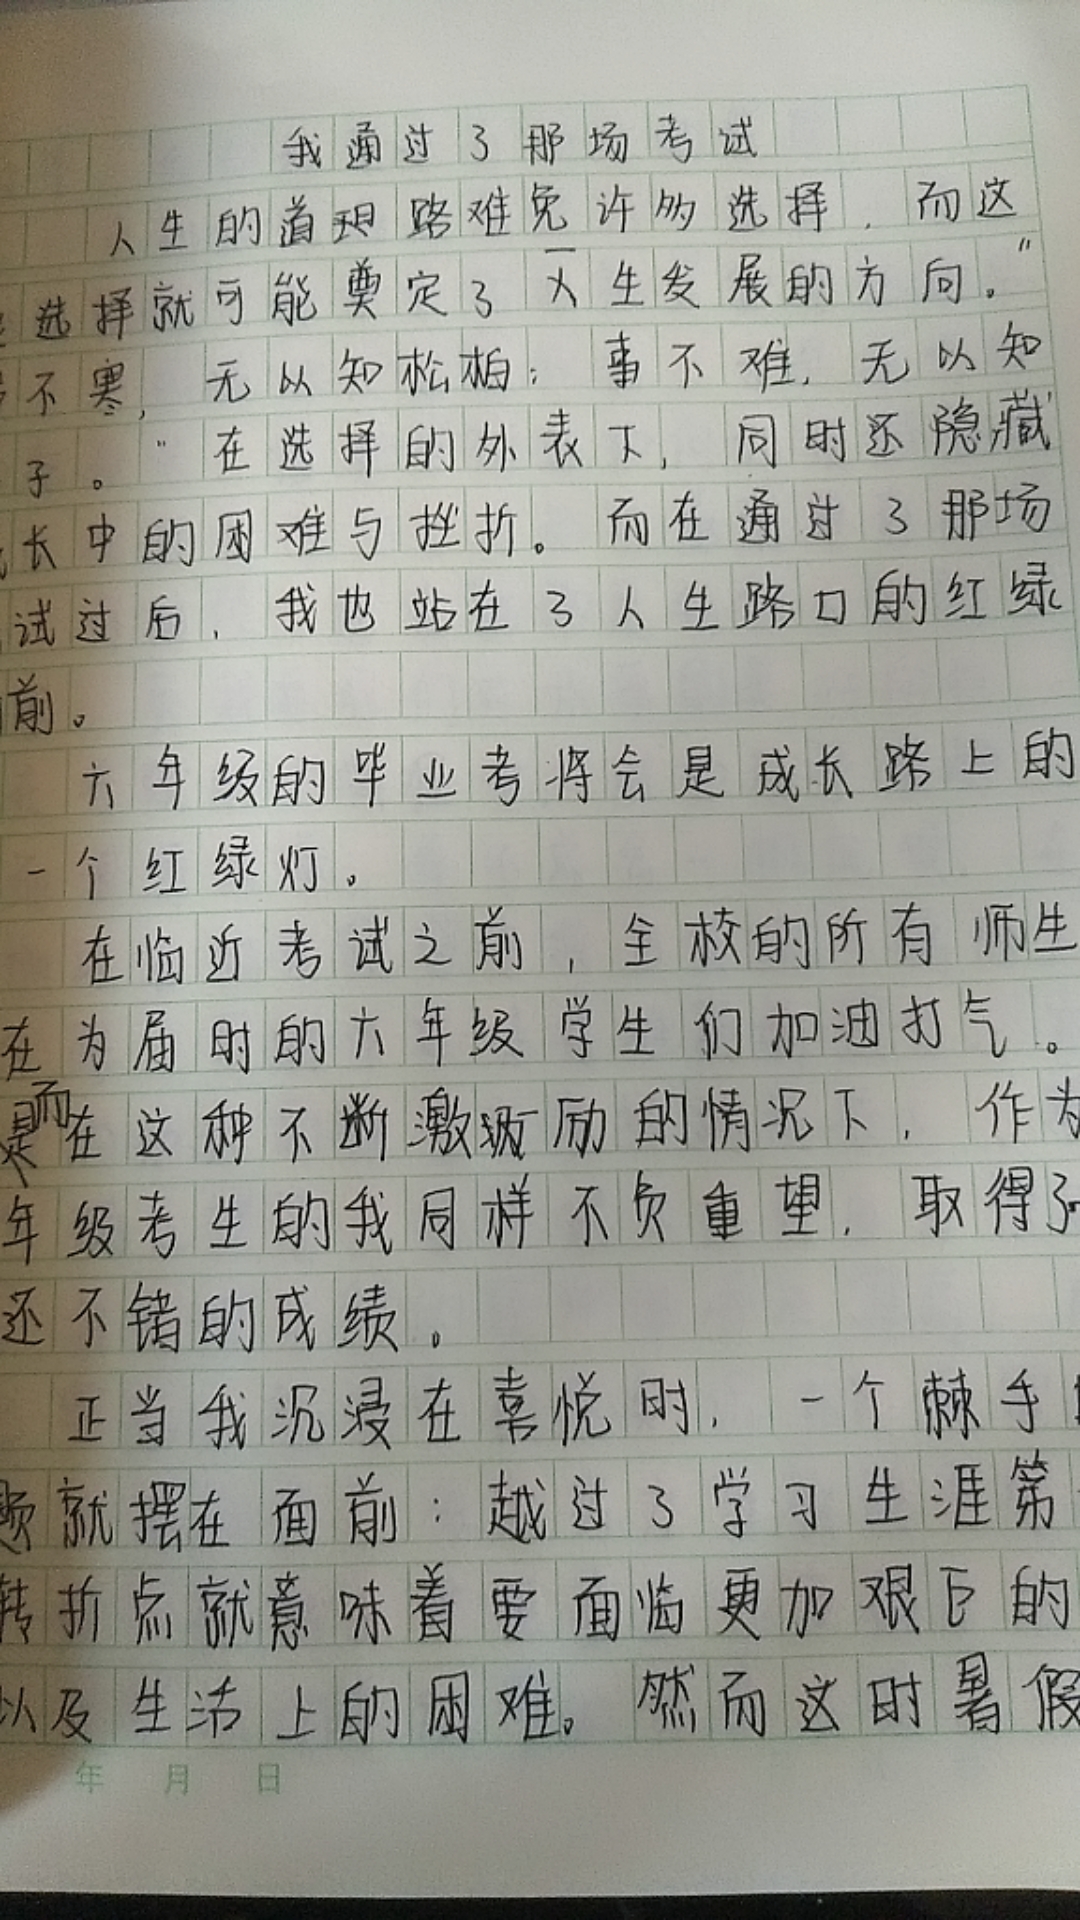 我通过了那场考试
人生的道理路难免许多选择，而这
选择就可能奠定了人生发展的方向。"
不寒，无以知松柏；事不难，无以知
子。"在选择的外表下，同时还隐藏
长中的困难与挫折。而在通过了那场
试过后，我也站在了人生路口的红绿
前。
六年级的毕业考将会是成长路上的
一个红绿灯。
在临近考试之前，全校的所有师生
在为届时的六年级学生们加油打气。
而在这种不断激励的情况下，作为
年级考生的我同样不负重望，取得了
还不错的成绩。
正当我沉浸在喜悦时，一个棘手
题就摆在面前：越过了学习生涯第
转折点就意味着要面临更加艰巨的
以及生活上的困难。然而这时暑假
年 月 日